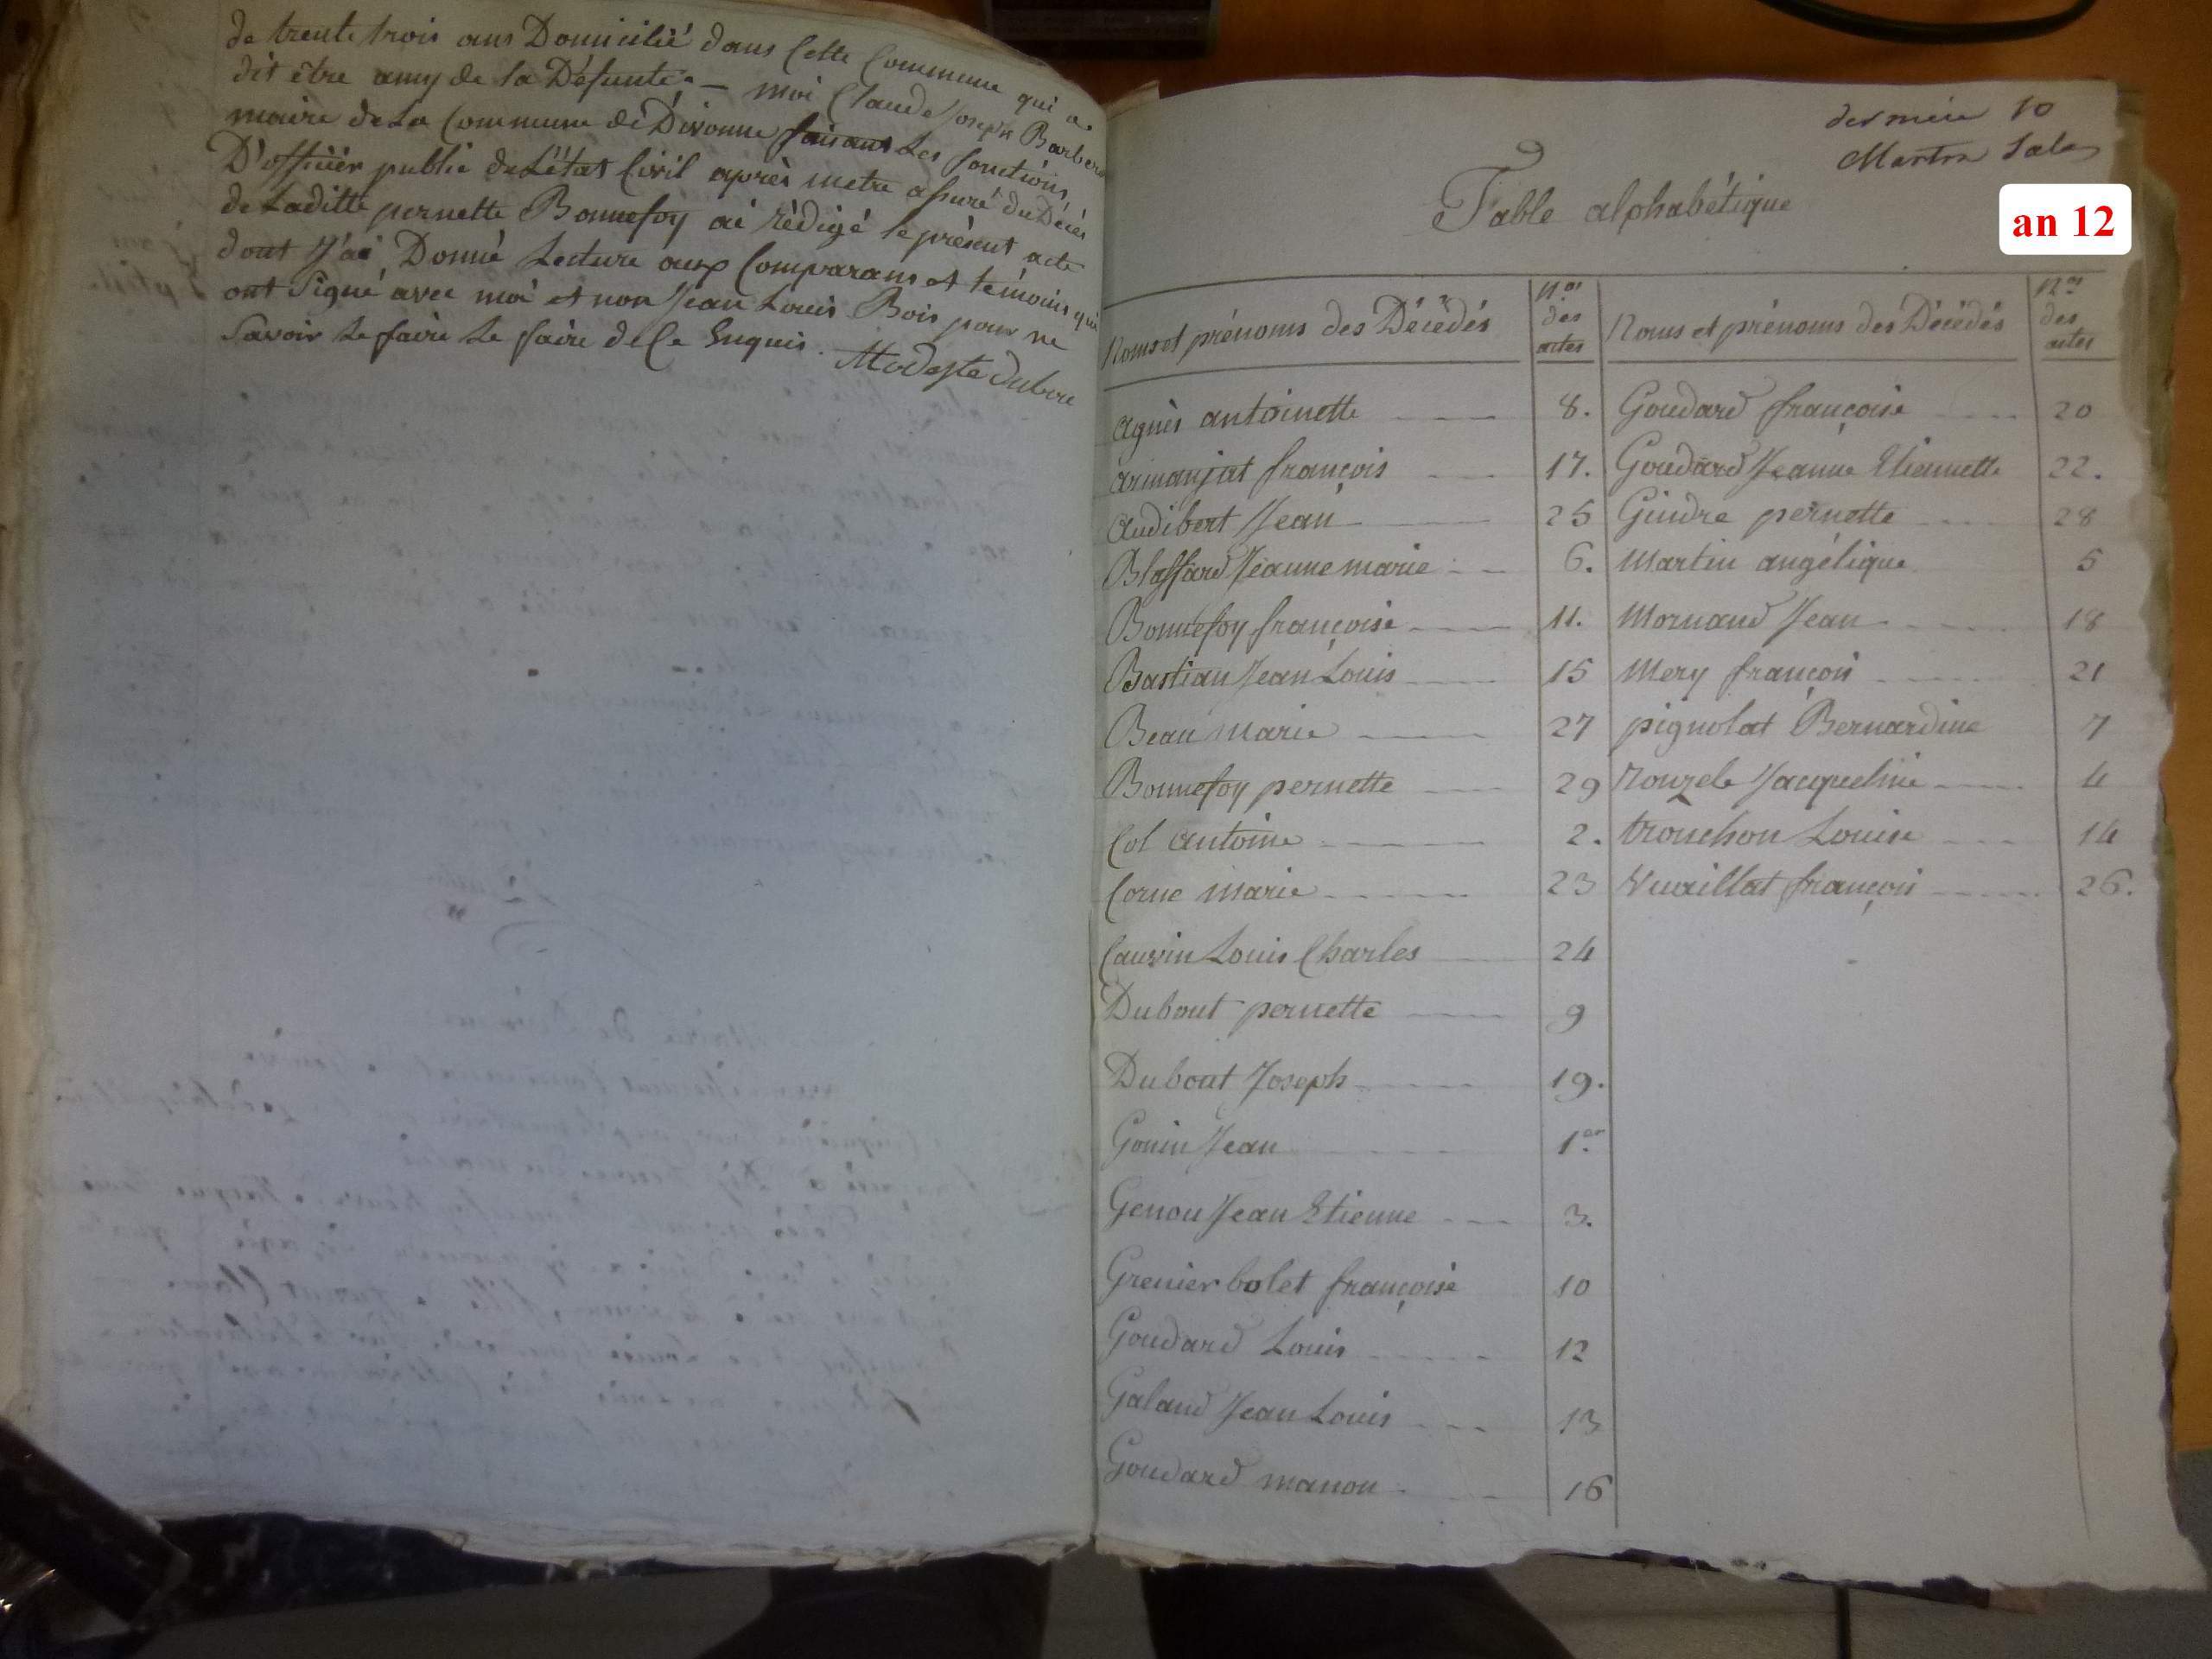 de trente trois ans Domicilié dans Cette Commune qui a
dit être amy de la Défunte. — moi Claude Joseph Barberat
maire de La Commune de Divonne faisant Les fonctions
D'officier public de L'état Civil après metre assuré du Décès
de Laditte pernette Bonnefoy ai rèdigé le présent acte
dont J'ai Donné Lecture aux Comparans et témoins qui
ont Signé avec moi et non Jean Louis Bois pour ne
Savoir Le faire Le faire de Ce Enquis. Modeste Duboue
dernier 10
Martin
an 12
Table alphabétique
Noms et prénoms des Décédés
N.os des actes
Noms et prénoms des Décédés
N.os des actes
agnès antoinette 8.
armanjat françois 17.
audibert Jean 25
Blassard Jeanne marie 6.
Bonnefoy françoise 11.
Bastian Jean Louis 15
Beau Marie 27
Bonnefoy pernette 29
Col antoine 2.
Corne Marie 23
Cauvin Louis Charles 24
Dubout pernette 9
Dubout Joseph 19.
Gonin Jean 1.er
Genou Jean Etienne 3.
Grenier bolet françoise 10
Goudard Louis 12
Galand Jean Louis 13
Goudard manon 16
Goudard françoise 20
Goudard Jeanne Etiennette 22.
Gindre pernette 28
Martin angélique 5
Mornand Jean 18
Mery françois 21
pignolat Bernardine 7
Rouzele Jacqueline 4
tronchon Louise 14
Vuaillat françois 26.